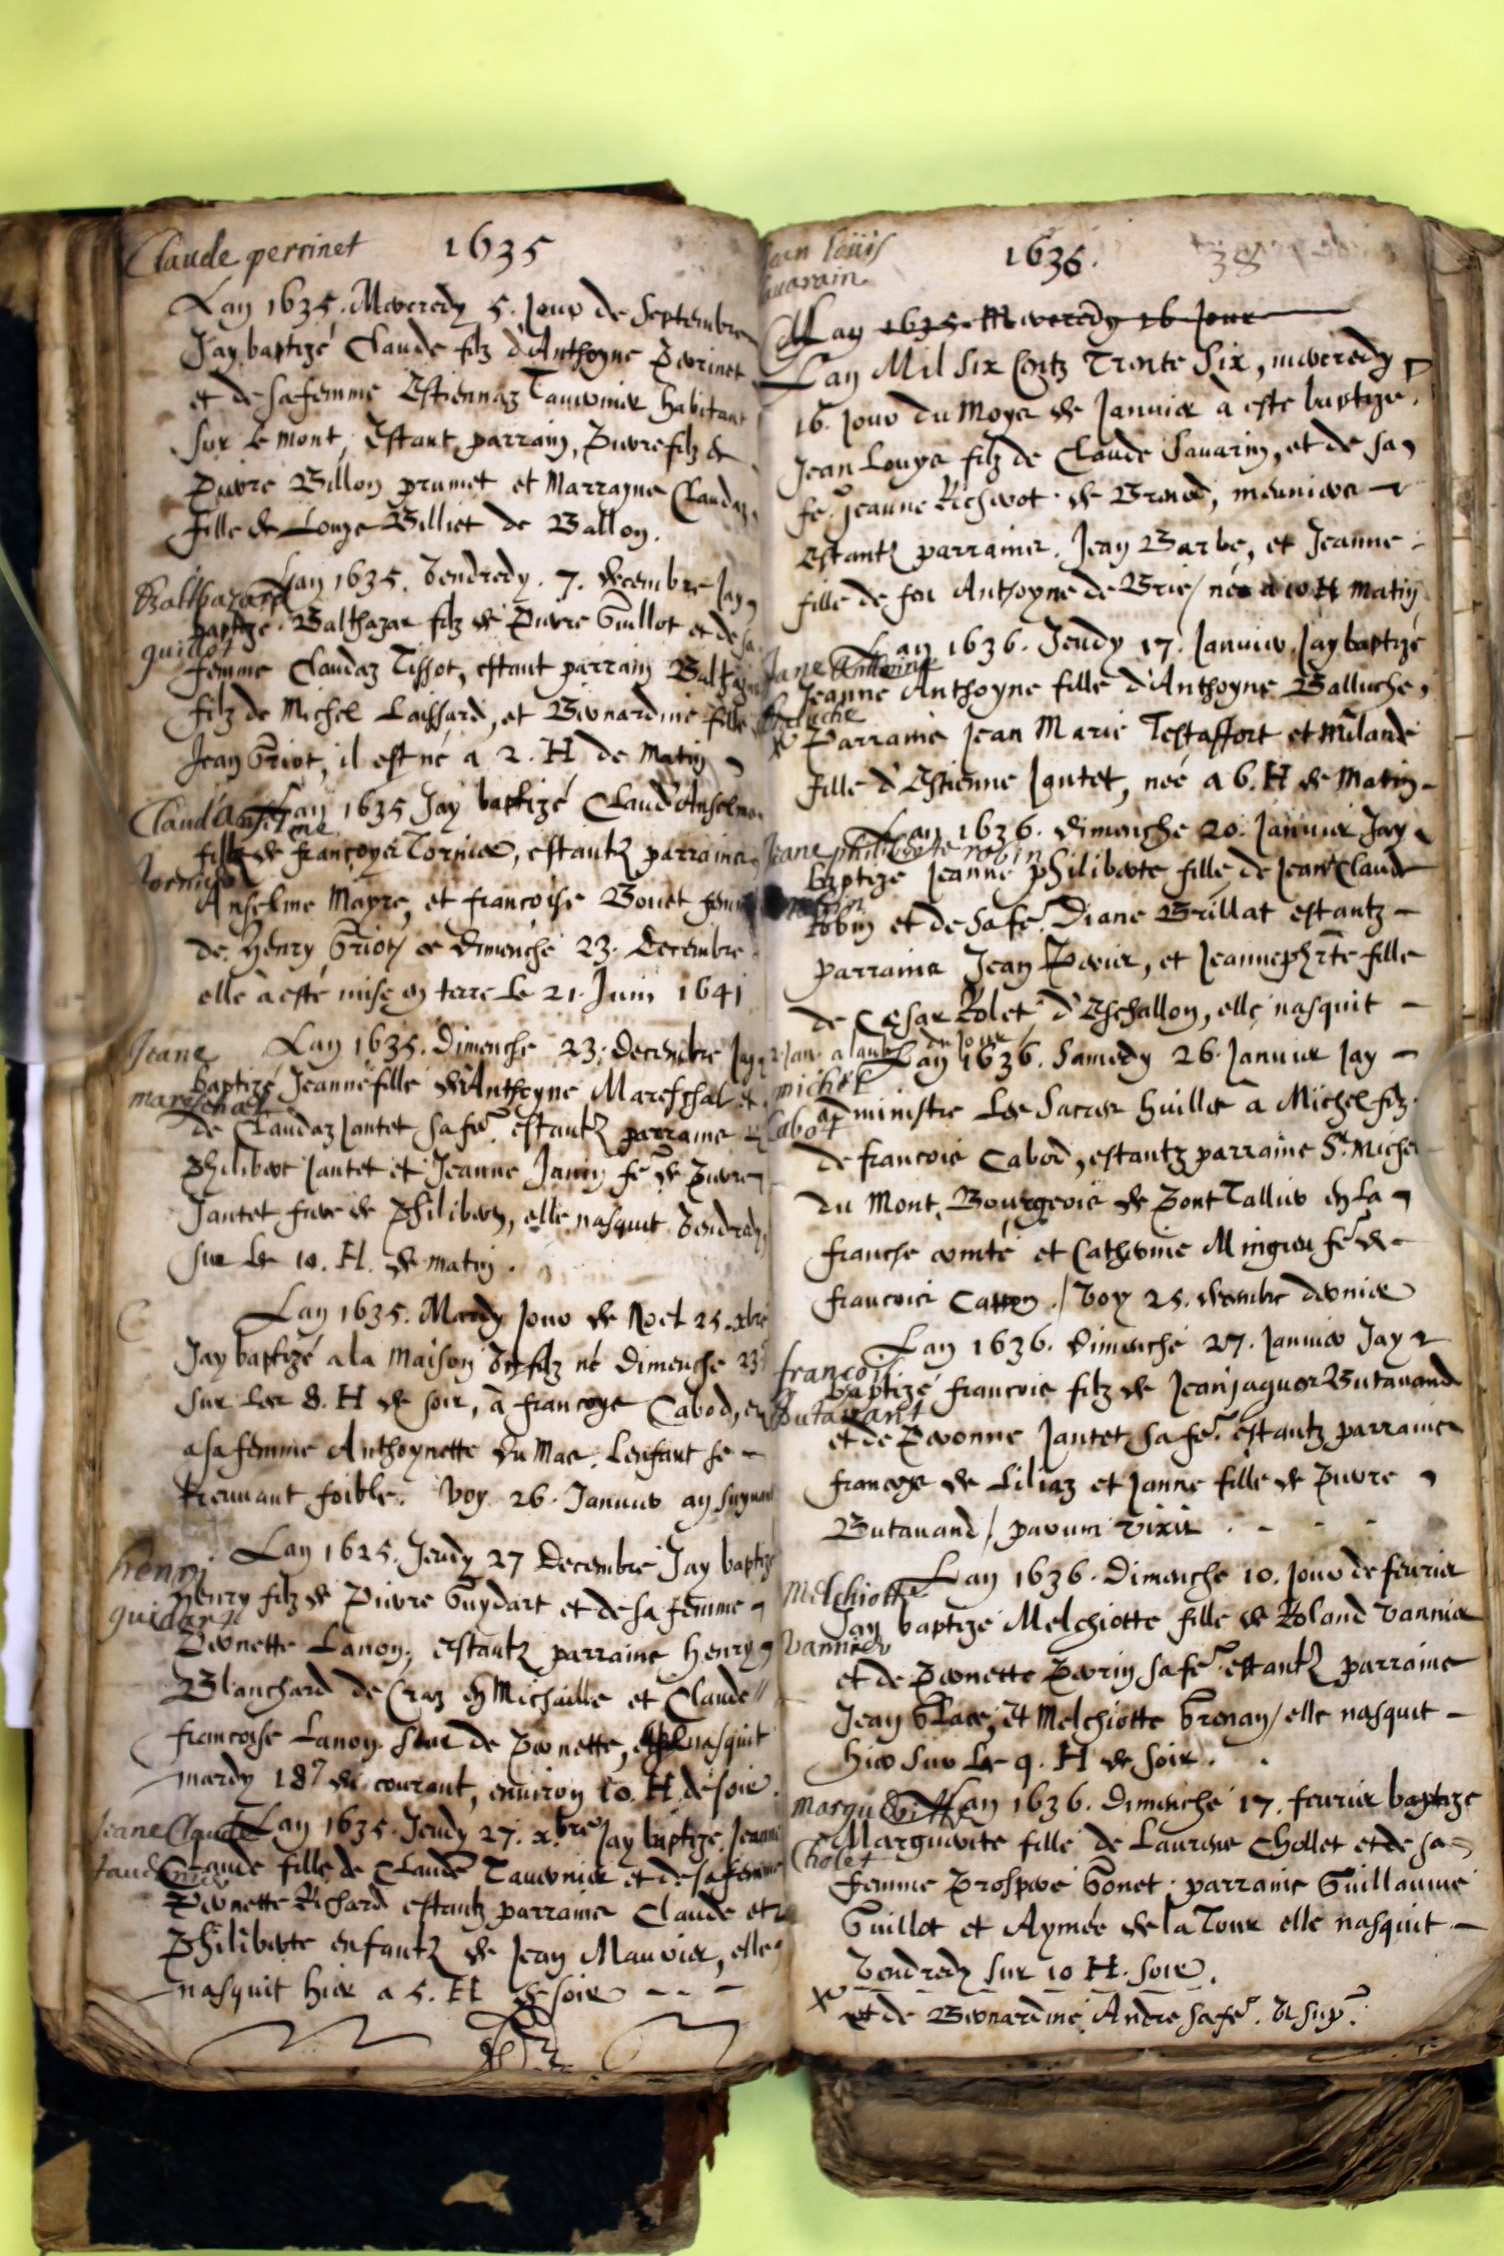 Claude perrinet 1635
Lan 1635. Mercredy 5. Jour de Septembre
Jay baptizé Claude filz d'Anthoyne Perrinet
et de sa femme Estiennaz Tavernier habitant
sur le mont, Estant parrain, Pierre filz de
Pierre Billon prumet et Marrayne Claudaz
fille de Louye Billiet de Ballon.
Balthazard guillot
Lan 1635. Vendredy. 7. decembre Jay
baptizé. Balthazar filz de Pierre Guillot et de sa
femme Claudaz Tissot, estant parrain Balthazar
filz de Michel Laissard, et Bernardine fille
Jean Griot, il est né a 2. H de Matin
Claud'Anselme Tornier
Lan 1635 Jay baptizé Claud'Anselme
fille de françoys Tornier, estantz parrains
Anselme Mayre, et françoise Bouet femme
de Henry Griot, ce Dimenche 23. Decembre
elle à esté mise en terre Le 21. Juin 1641
Jeane mareschal
Lan 1635. Dimenche 23. decembre Jay
baptizé Jeanne fille d'Anthoyne Mareschal et
de Claudaz Jantet sa fe. estantz parrains
Philibert Jantet et Jeanne Janin fe de Pierre
Jantet frere de Philibert, elle nasquit Vendredy
sur les 10. H. de matin.
Lan 1635. Mardy Jour de Noel 25. xbre
Jay baptizé a la Maison Un filz né Dimenche 23
sur les 8. H de soir, à françoys Cabod, et
a sa femme Anthoynette du Mas. Lenfant se
treuvant foible. Voy. 26. Januier an suyuant
henri guidart
Lan 1625. Jeudy 27 Decembre Jay baptizé
Henry filz de Pierre Guydart et de sa femme
Pernette Lanoy, estantz parrains Henry
Blanchard de Craz en Michaille et Claude
francoise Lanoy sœur de Pernette, nasquit
mardy 18 du courant, environ 10. H. de soir.
Jeane Claude
Lan 1635. Jeudy 27. x.bre Jay baptizé Jeanne
Claude fille de Claude Tavernier et de sa femme
Pernette Richard estantz parrains Claude et
Philiberte enfantz de Jean Mauvier, elle
nasquit hier a 5. H de soir
Jean louis sauarain
1636. 38
Lan 1635. Mercredy 16 Jour
Lan Mil Six Centz Trente Six, mercredy
16. jour du Moys de Januier à esté baptizé
Jean Louys filz de Claude Sauarin, et de sa
fe. Jeanne Richerot de Brened, meuniers
Estantz parrains. Jean Barbe, et Jeanne
fille de feu Anthoyne de Brie / né a 10 H matin
Jane Anthoine Baluche
Lan 1636. Jeudy 17. Januier, Jay baptizé
Jeanne Anthoyne fille d'Anthoyne Balluche,
x Parrains Jean Marie Testaffort et Milande
fille d'Estienne Jantet, née a 6. H de Matin
Jeane philiberte robin
Lan 1636. dimenche 20. Januier Jay
baptizé Jeanne philiberte fille de Jean Claude
Robin et de sa fe. Diane Brillat estantz
parrains Jean Perier, et Jeanne phte fille
de Cesar Rolet d'Eschallon, elle nasquit
du jour
michel Cabot
Lan 1636. Samedy 26. Januier Jay
administre Les Sacrez huilles à Michel filz
de francois Cabod, estantz parrains Sr. Michel
du Mont, Bourgeois de Pont Tallier en La
franche comté et Catherine Mingieu fe de
francois Catton. / Voy 25. decembre dernier
francois butavant
Lan 1636. Dimenche 27. Januier Jay
baptizé francois filz de Jean jaques Butavand
et de Pernonne Jantet sa fe. estantz parrains
francoys de Liliaz et Janne fille de Pierre
Butavand / parum vixit.
Melchiotte Vannier
Lan 1636. Dimenche 10. jour de feurier
Jay baptizé Melchiotte fille de Roland Vannier
et de Pernette Perrin sa fe. estantz parrains
Jean Glace, et Melchiotte Grenay / elle nasquit
hier sur les 9. H de soir.
Cholet
Lan 1636. Dimenche 17. feurier baptizé
Marguerite fille de Laurens Chollet et de sa
femme Prospere Gonet. parrains Guillaume
Guillot et Aymée de la Tour elle nasquit
Vendredy sur 10 H. soir.
x et de Bernardine Andre sa fe. Ut sup.